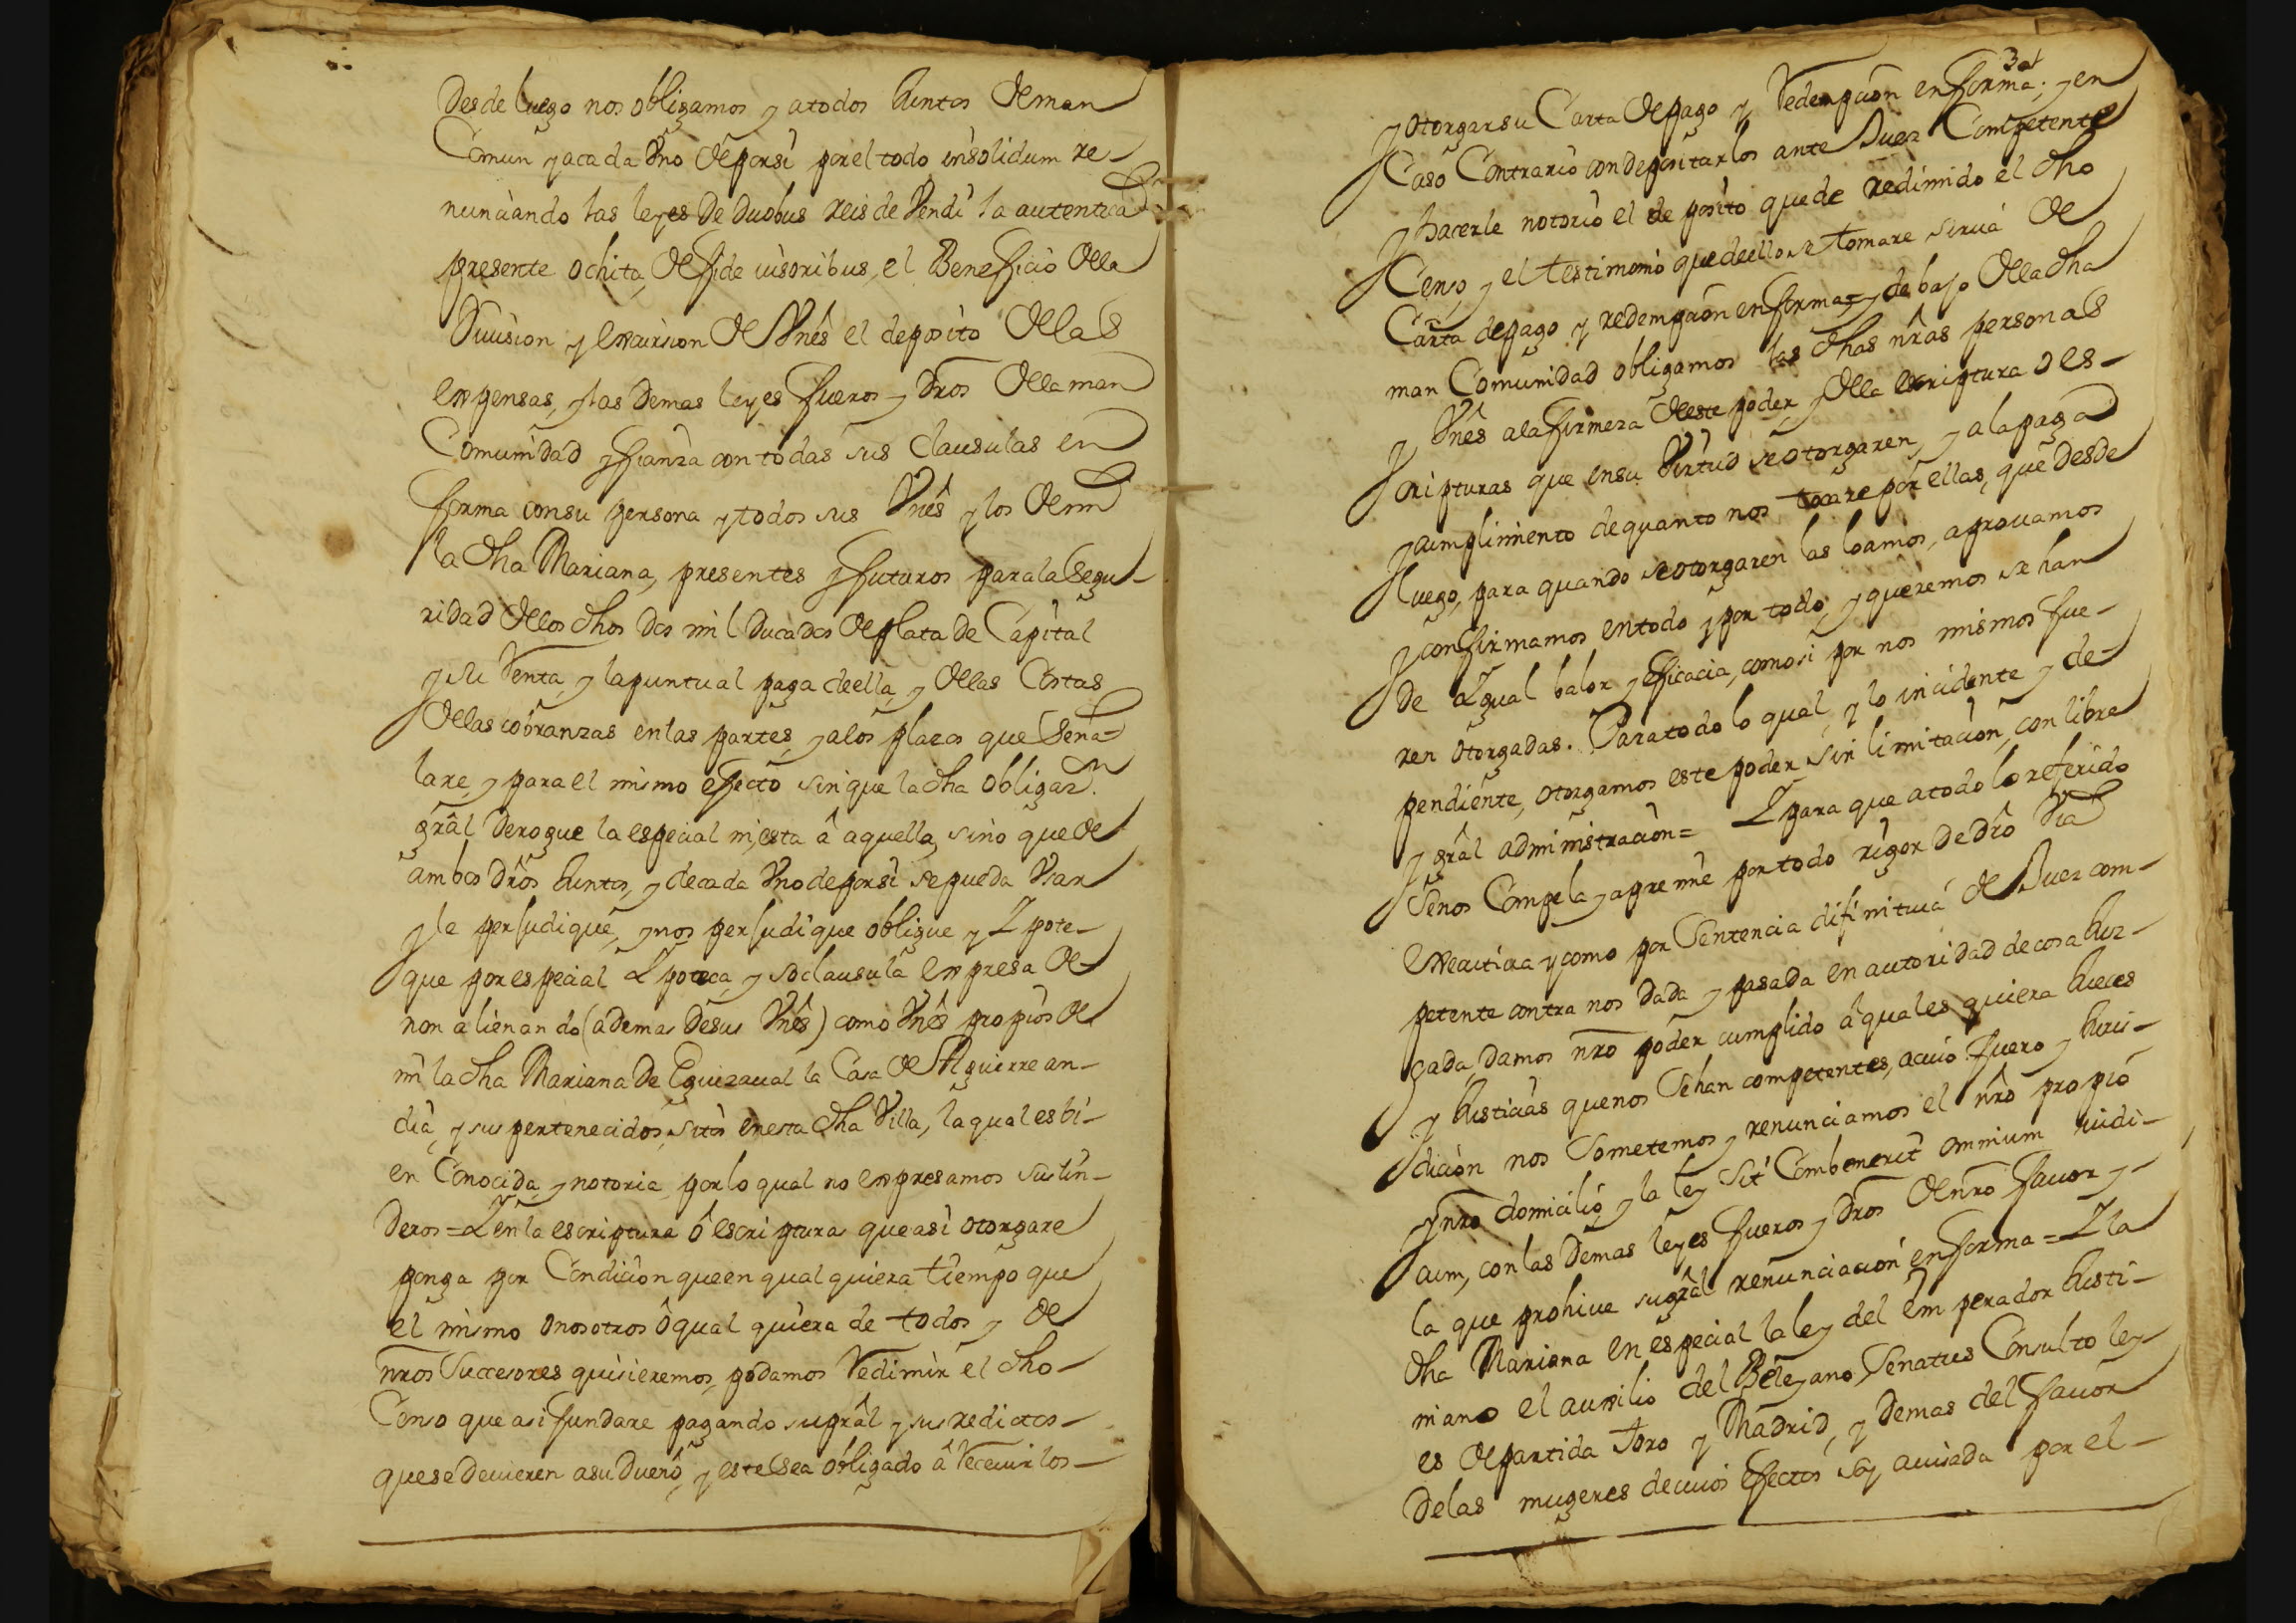 Desde luego nos obligamos y a todos Juntos de man
Comun y a cada Vno de por si por el todo insolidum re-
nunciando las leyes de duobus reis de Vendi la autentica
presente ochita, de fide iusoribus, el Beneficio de la
Diuision y Excursion de Vnês el deposito de las
Expensas, y las demas leyes fueros y drôs de la man
Comunidad y fianza con todas sus Clausulas en
forma con su persona y todos sus Vnês y los de mi
la dha Mariana, presentes y futuros para la Segu-
ridad de los dhos dos mil ducados de plata de Capital
y su Renta, y la puntual paga de ella, y de las Costas
de las cobranzas en las partes, y a los plazos que Sena-
lare, y para el mismo efecto sin que la dha obligaz.n
grâl derogue la especial ni esta â aquella, sino que de
ambos drôs Juntos, y de cada Vno de por si se pueda Vsar
y le perjudique, y nos perjudique obligue y Ypote-
que por especial Ypoteca, y so clausula Expresa de
non alienando (ademas de sus Vnês) como Vnês propios de
mi la dha Mariana de Eguizaual la Casa de Aguirrean-
dia, y sus pertenecidos, sitos en esta dha Villa, la qual es bi-
en Conocida, y notoria, por lo qual no expresamos sus lin-
deros = Y en la escriptura ô escripturas que asi otorgare
ponga por Condicion que en qual quiera tiempo que
el mismo o nosotros ô qual quiera de todos y de
nrôs Succesores quisieremos, podamos Redimir el dho
Censo que asi fundare pagando su prâl y sus redictos
que se deuieren a su Dueño, y este Sea obligado â Receuirlos
3
y otorgar su Carta de pago y Redempcion en forma; y en
Caso Contrario con depositarlos ante Juez Competente
y hacerle notorio el deposito quede redimido el dho
Censo, y el testimonio que de ello se tomare sirua de
Carta de pago y redempcion en forma = y debajo de la dha
man Comunidad obligamos las dhas nrâs personas
y Vnês a la firmeza de este poder, y de la escriptura o es-
cripturas que en su Virtud se otorgaren, y a la paga
y cumplimiento de quanto nos tocare por ellas, que desde
luego, para quando se otorgaren las loamos, aprouamos
y confirmamos en todo y por todo, y queremos se han
de Ygual balor y eficacia, como si por nos mismos fue-
ren otorgadas. Para todo lo qual, y lo incidente y de-
pendiente, otorgamos este poder sin limitacion, con libre
y grâl administracion = Y para que a todo lo referido
Senos Compela y apremie por todo rigor de drô Via
Executiua y como por Sentencia difinitiua de Juez com-
petente contra nos dada y pasada en autoridad de cosa Juz-
gada, damos nrô poder cumplido â quales quiera Jueces
y Justicias que nos Sehan competentes, a cuio fuero y Juris-
dicion nos Sometemos, y renunciamos el nrô propio
y nrô domicilio, y la ley Sit Combenerit omnium iudi-
cum, con las demas leyes fueros y drôs de nrô fauor y
la que prohiue su grâl renunciacion en forma = Y la
dha Mariana en especial la ley del Emperador Justi-
niano el auxilio del Beleyano Senatus Consulto ley-
es de partida toro y Madrid, y demas del fauor
de las mugeres de cuios efectos soy auisada por el